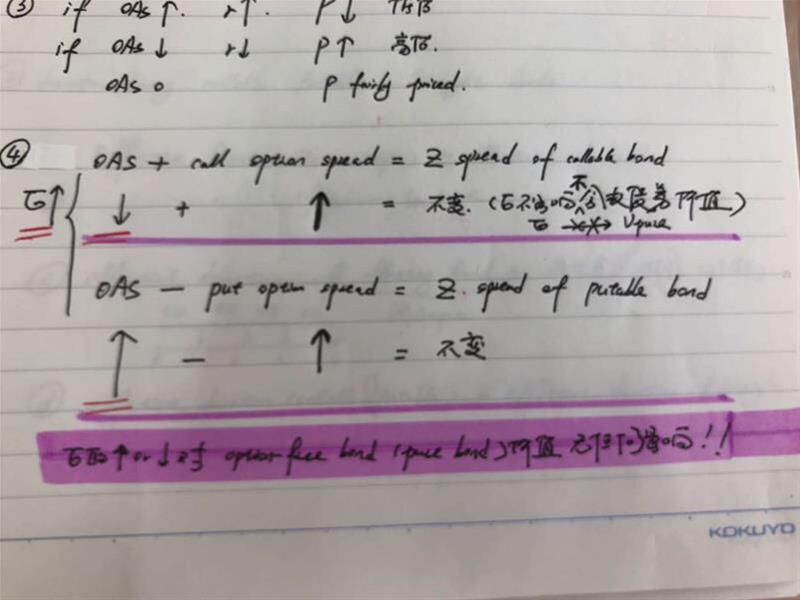 ③ if OAS ↑. r↑. P↓
if OAS ↓ r↓ P↑ 高估.
OAS 0 P fairly priced.
④ OAS + call option spread = Z spread of callable bond
σ↑ ↓ + ↑ = 不变. (σ不影响
V pure
OAS — put option spread = Z. spread of putable bond
↑ — ↑ = 不变
↑ or ↓ 对 option free bond (pure bond) 价值 影响!!
KOKUYO